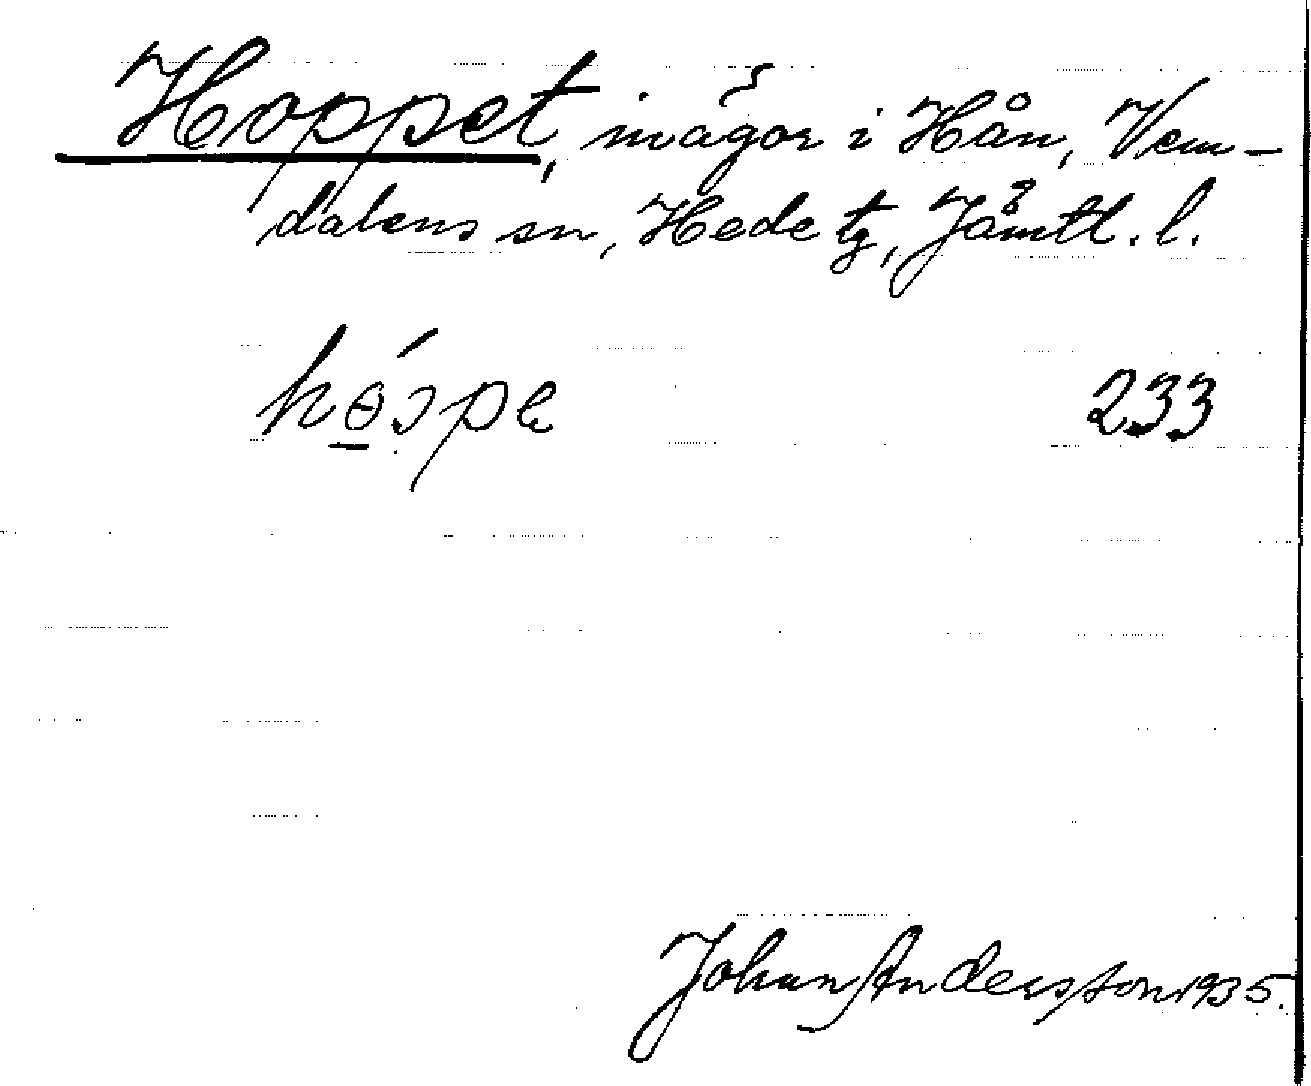 Hoppet, inägor i Hån, Vem-
dalens sn, Hede tg, Jämtl. l.
hɵ́spe 233
Johan Andersson 1935.